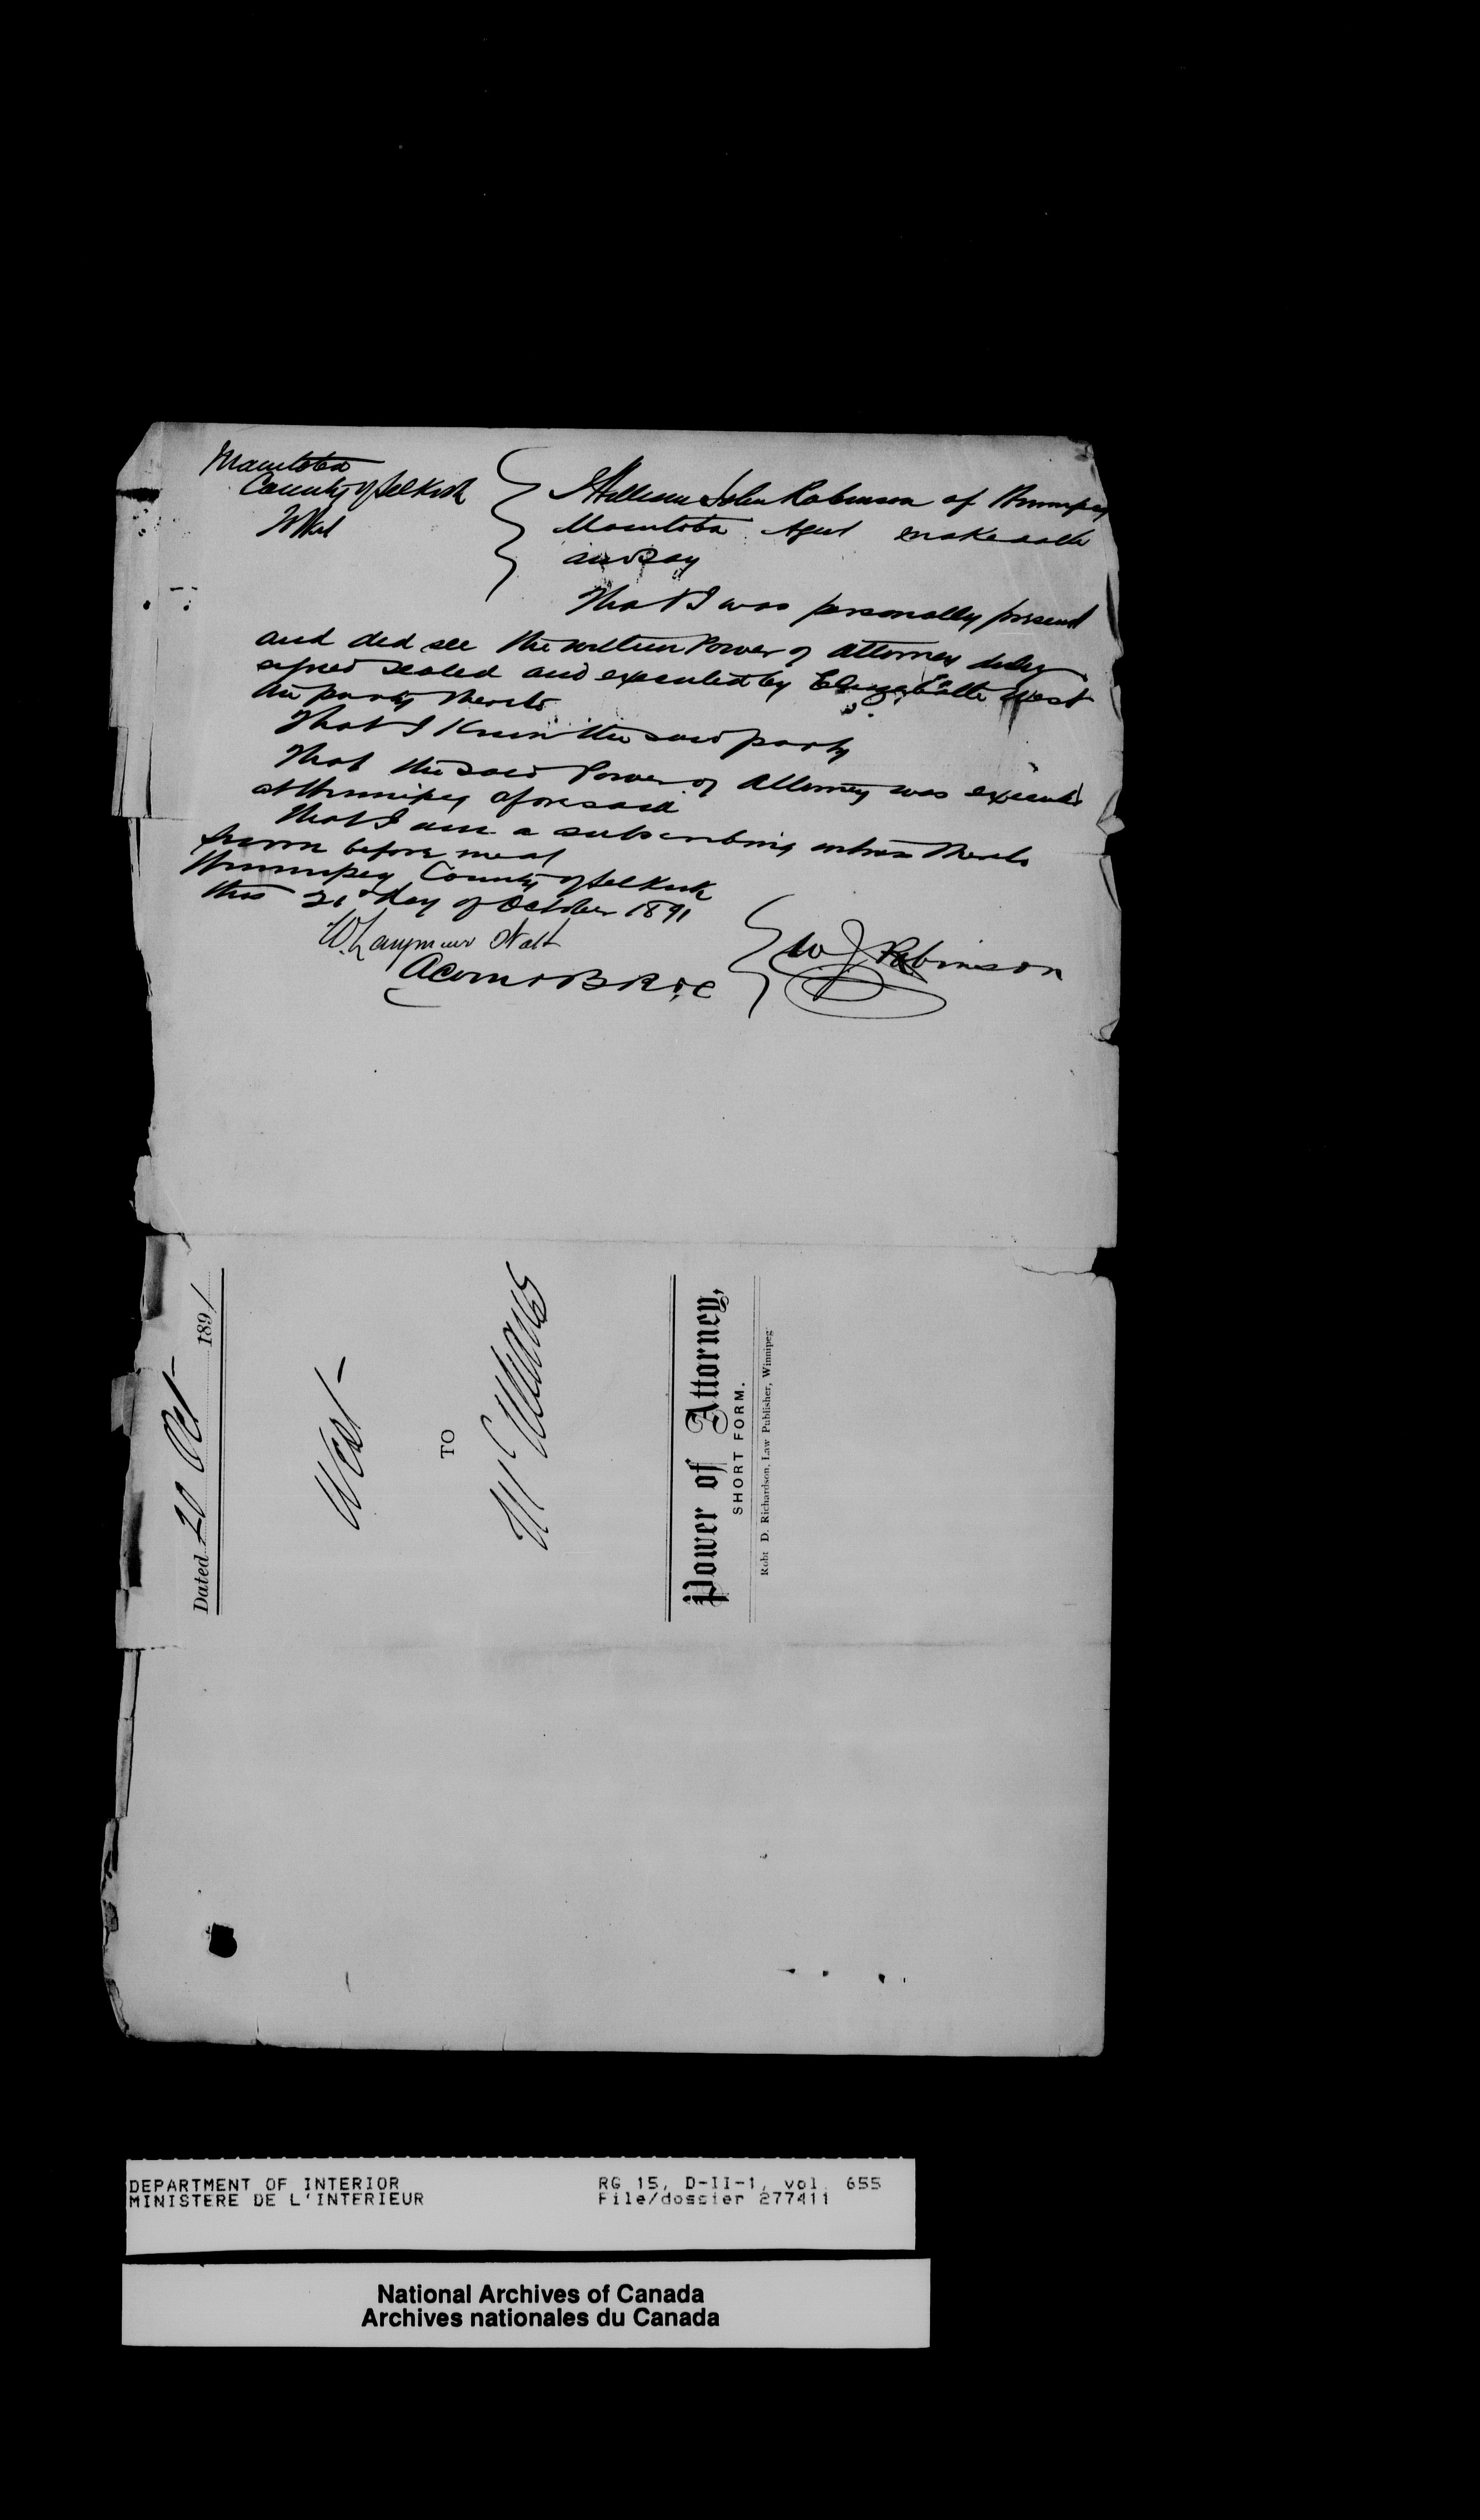 Manitoba
County of Selkirk
To Wit
I William John Robinson of Winnipeg
Manitoba Agent make oath
and say
That I was personally present
and did see the within Power of Attorney duly
signed sealed and executed by Elizabeth West
the party thereto
That I know the said party
That the said Power of Attorney was executed
at Winnipeg aforesaid
That I am a subscribing witness thereto
Sworn before me at
Winnipeg County of Selkirk
this 21st day of October 1891
A Com in B R &c
W J Robinson
Dated 20 Oct 1891
West
TO
Power of Attorney,
SHORT FORM.
Robt D. Richardson, Law Publisher, Winnipeg
DEPARTMENT OF INTERIOR
MINISTERE DE L'INTERIEUR
RG 15, D-II-1, vol. 655
File/dossier 277411
National Archives of Canada
Archives nationales du Canada